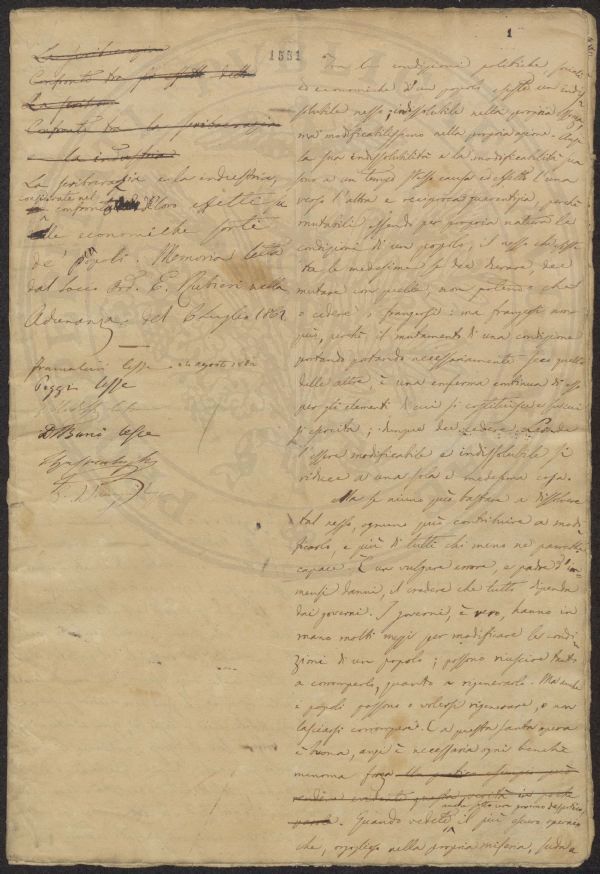 1
1551
La scribocrazia
Confronto tra gli effetti della
La scribo
Confronto tra la scribocrazia
e la industria
La scribocrazia e la industria,
nel
confronto de' loro effetti
economiche sorti
de' popoli. Memoria letta
dal Socio Ord. E. Rubieri nella
Adunanza del Luglio 1862
lesse agosto
Poggi lesse
lesce
Tra le condizioni politiche sociali
ed economiche d'un popolo esiste un indis
solubile nesso; indissolubile nella propria
ma modificabilissimo nella propria
la sua indissolubilità e la modificabilità
sono a un tempo stesso causa ed effetto l'una
verso l'altra e reciproca guarentigia perché
mutabili essendo per propria natura le
condizioni di un popolo, il nesso che
tra le medesime se dee durare, dee
mutare con quelle, non potendo che
o cedere o frangersi: ma frangersi non
può, perché il mutamento di una condizione
portando portando necessariamente seco quello
delle altre, è una conferma continua di esso
per gli elementi di cui si costituisce e su cui
si esercita; dunque dee cedere. Laonde
l'essere modificabile e indissolubile si
riduce a una sola e medesima cosa.
Ma se niuno può bastare a dissolvere
tal nesso, ognuno può contribuire a modi
ficarlo, e più di tutti chi meno ne parrebbe
capace. È un volgare errore, e padre d'im
mensi danni, il credere che tutto dipenda
dai governi. I governi, è vero, hanno in
mano molti mezzi per modificare le condi
zioni di un popolo; possono riuscire tanto
a corromperlo, quanto a rigenerarlo. Ma anche
i popoli possono o volersi rigenerare, o non
lasciarsi corrompere. E a questa santa opera
è buona, anzi è necessaria ogni benché
menoma forza
rendere evidente questa verità in
anche sotto un governo dispotico,
Quando vedete il più oscuro operaio
che, orgoglioso nella propria miseria, suda a